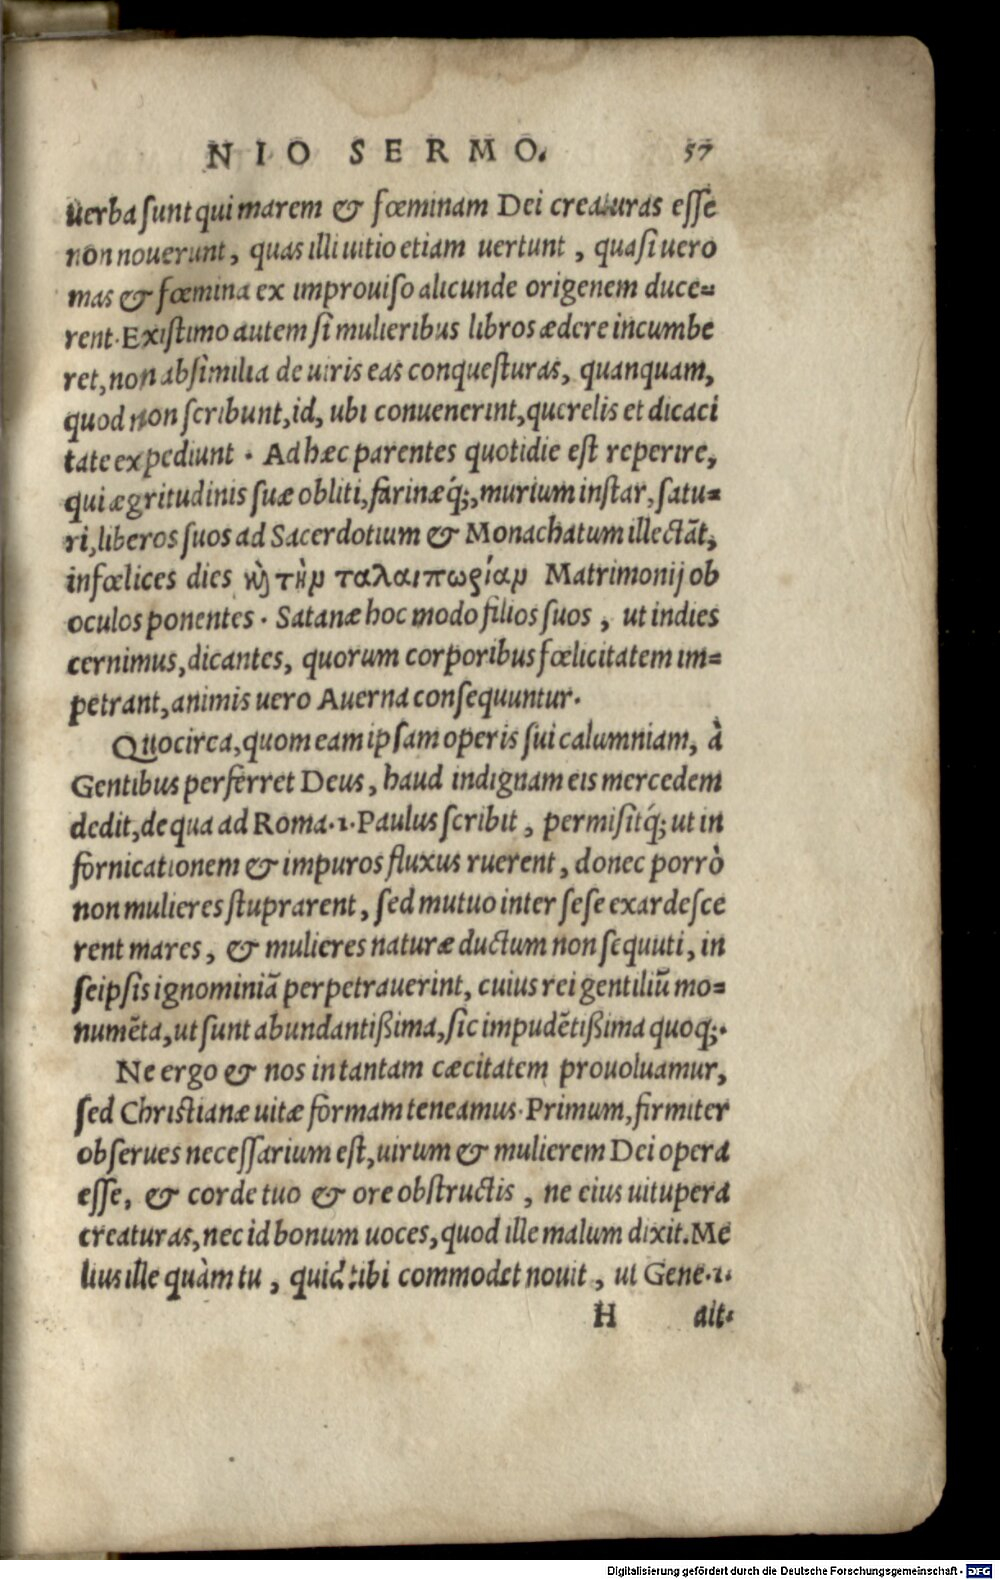 NIO SERMO. 57
uerba sunt qui marem & fœminam Dei creaturas esse
non nouerunt, quas illi uitio etiam uertunt, quasi uero
mas & fœmina ex improuiso alicunde origenem duce=
rent. Existimo autem si mulieribus libros ædere incumbe
ret, non absimilia de uiris eas conquesturas, quanquam,
quod non scribunt, id, ubi conuenerint, querelis et dicaci
tate expediunt. Ad hæc parentes quotidie est reperire,
qui ægritudinis suæ obliti, farinæq́;, murium instar, satu=
ri, liberos suos ad Sacerdotium & Monachatum illectãt,
infœlices dies ϗ̀ τὴν ταλαιπωρίαν Matrimonij ob
oculos ponentes. Satanæ hoc modo filios suos, ut indies
cernimus, dicantes, quorum corporibus fœlicitatem im=
petrant, animis uero Auerna consequuntur.
Quocirca, quom eam ipsam operis sui calumniam, à
Gentibus perferret Deus, haud indignam eis mercedem
dedit, de qua ad Roma.1. Paulus scribit, permisitq́; ut in
fornicationem & impuros fluxus ruerent, donec porrò
non mulieres stuprarent, sed mutuo inter sese exardesce
rent mares, & mulieres naturæ ductum non sequuti, in
seipsis ignominiã perpetrauerint, cuius rei gentiliũ mo=
numẽta, ut sunt abundantißima, sic impudẽtißima quoq;.
Ne ergo & nos in tantam cæcitatem prouoluamur,
sed Christianæ uitæ formam teneamus. Primum, firmiter
obserues necessarium est, uirum & mulierem Dei opera
esse, & corde tuo & ore obstructis, ne eius uitupera
creaturas, nec id bonum uoces, quod ille malum dixit. Me
lius ille quàm tu, quid tibi commodet nouit, ut Gene.1.
H ait.
Digitalisierung gefördert durch die Deutsche Forschungsgemeinschaft - DFG